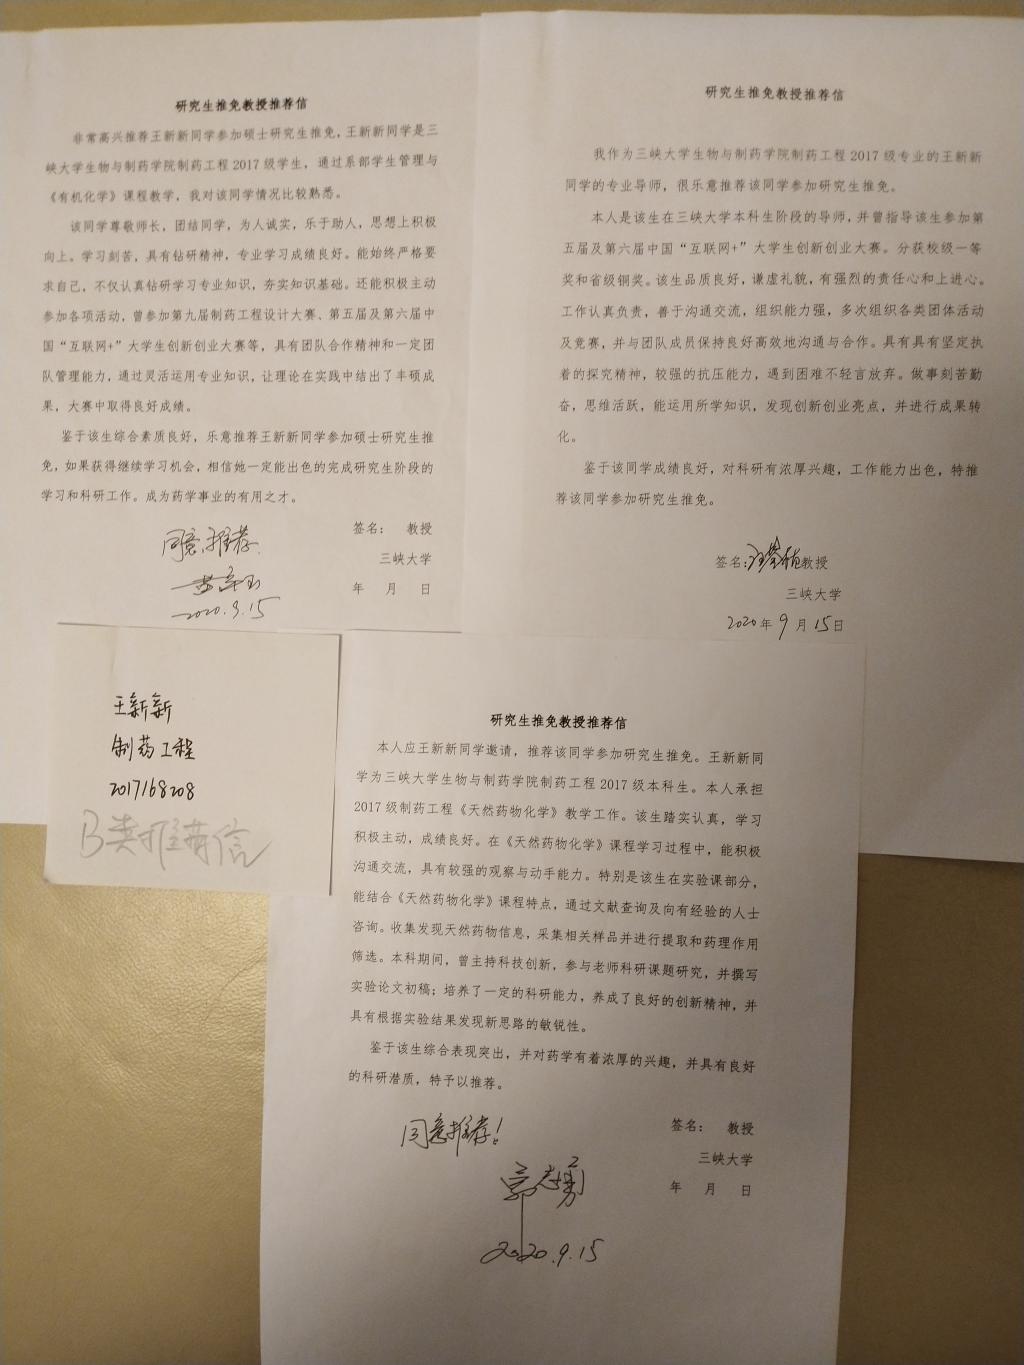 研究生推免教授推荐信
非常高兴推荐王新新同学参加硕士研究生推免,王新新同学是三
峡大学生物与制药学院制药工程2017级学生,通过系部学生管理与
《有机化学》课程教学,我对该同学情况比较熟悉。
该同学尊敬师长,团结同学,为人诚实,乐于助人,思想上积极
向上。学习刻苦,具有钻研精神,专业学习成绩良好。能始终严格要
求自己,不仅认真钻研学习专业知识,夯实知识基础。还能积极主动
参加各项活动,曾参加第九届制药工程设计大赛、第五届及第六届中
国“互联网+”大学生创新创业大赛等,具有团队合作精神和一定团
队管理能力,通过灵活运用专业知识,让理论在实践中结出了丰硕成
果,大赛中取得良好成绩。
鉴于该生综合素质良好,乐意推荐王新新同学参加硕士研究生推
免,如果获得继续学习机会,相信她一定能出色的完成研究生阶段的
学习和科研工作。成为药学事业的有用之才。
签名: 教授
同意推荐.
三峡大学
年 月 日
2020.9.15
研究生推免教授推荐信
我作为三峡大学生物与制药学院制药工程2017级专业的王新新
同学的专业导师,很乐意推荐该同学参加研究生推免。
本人是该生在三峡大学本科生阶段的导师,并曾指导该生参加第
五届及第六届中国“互联网+”大学生创新创业大赛。分获校级一等
奖和省级铜奖。该生品质良好,谦虚礼貌,有强烈的责任心和上进心。
工作认真负责,善于沟通交流,组织能力强,多次组织各类团体活动
及竞赛,并与团队成员保持良好高效地沟通与合作。具有具有坚定执
着的探究精神,较强的抗压能力,遇到困难不轻言放弃。做事刻苦勤
奋,思维活跃,能运用所学知识,发现创新创业亮点,并进行成果转
化。
鉴于该同学成绩良好,对科研有浓厚兴趣,工作能力出色,特推
荐该同学参加研究生推免。
签名: 教授
三峡大学
2020年9月15日
王新新
制药工程
2017168208
B类推荐信
研究生推免教授推荐信
本人应王新新同学邀请,推荐该同学参加研究生推免。王新新同
学为三峡大学生物与制药学院制药工程2017级本科生。本人承担
2017级制药工程《天然药物化学》教学工作。该生踏实认真,学习
积极主动,成绩良好。在《天然药物化学》课程学习过程中,能积极
沟通交流,具有较强的观察与动手能力。特别是该生在实验课部分,
能结合《天然药物化学》课程特点,通过文献查询及向有经验的人士
咨询。收集发现天然药物信息,采集相关样品并进行提取和药理作用
筛选。本科期间,曾主持科技创新,参与老师科研课题研究,并撰写
实验论文初稿;培养了一定的科研能力,养成了良好的创新精神,并
具有根据实验结果发现新思路的敏锐性。
鉴于该生综合表现突出,并对药学有着浓厚的兴趣,并具有良好
的科研潜质,特予以推荐。
签名: 教授
同意推荐!
三峡大学
郭志勇
年 月 日
2020.9.15